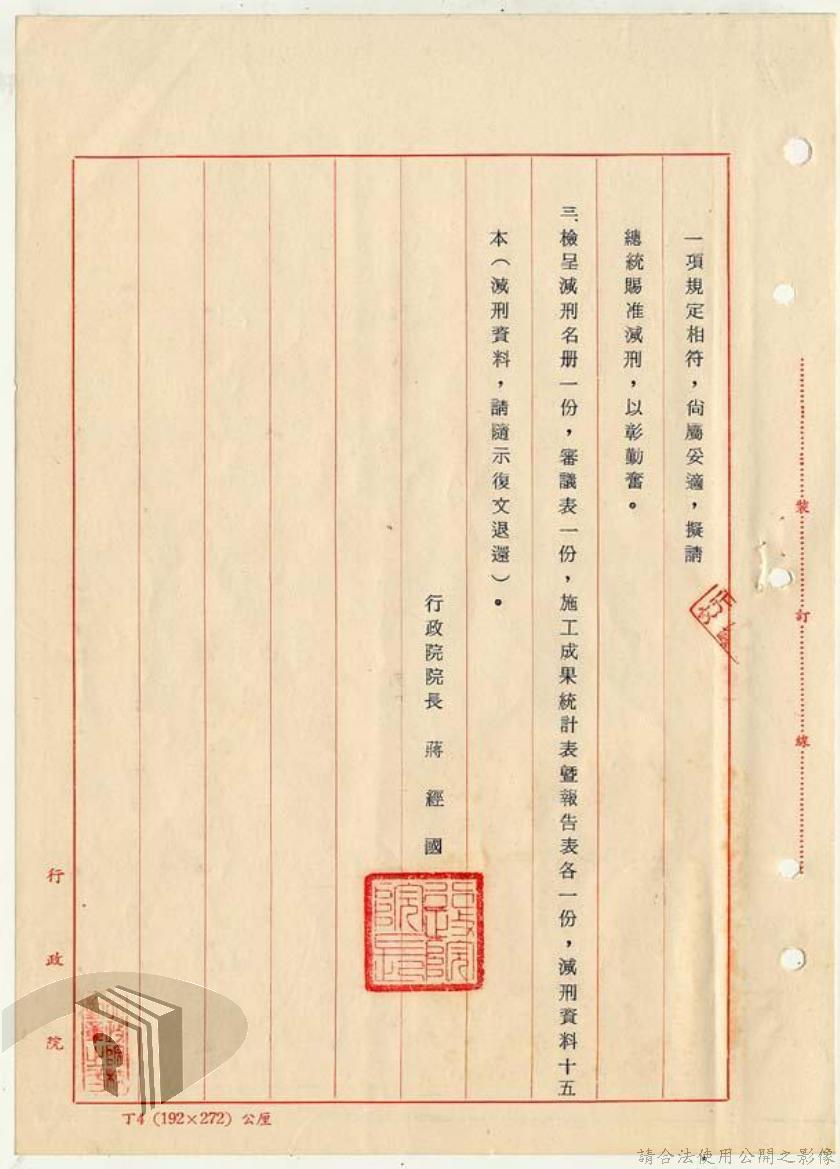 一項規定相符，尚屬妥適，擬請
總統賜准減刑，以彰勤奮。
三、檢呈減刑名册一份，審議表一份，施工成果統計表暨報告表各一份，減刑資料十五
本（減刑資料，請隨示復文退還）。
行政院院長 蔣 經 國
行政院院長
裝 訂 線
行 政 院
丁4 (192×272) 公厘
請合法使用公開之影像